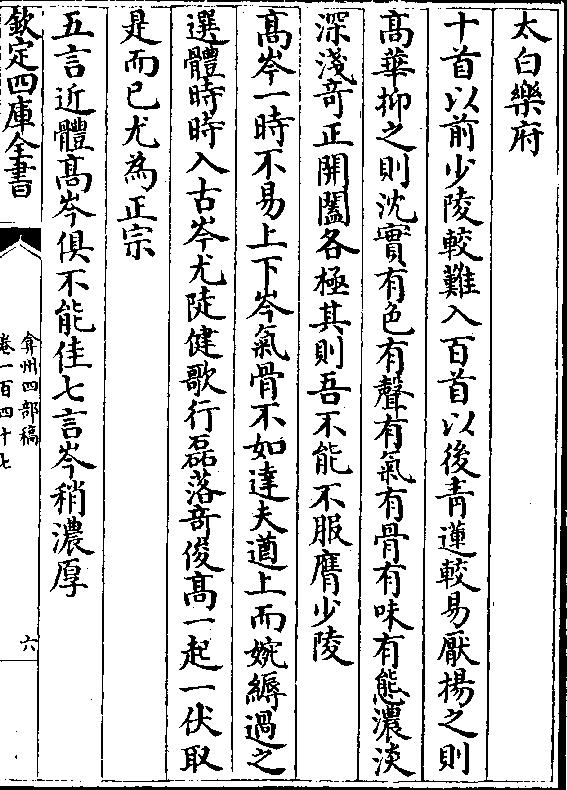 太白樂府
十首以前少陵較難入百首以後青蓮較易厭揚之則
髙華抑之則沈實有色有聲有氣有骨有味有態濃淡
深淺竒正開闔各極其則吾不能不服膺少陵
髙岑一時不易上下岑氣骨不如達夫遒上而婉縟過之
選體時時入古岑尤陡健歌行磊落竒俊髙一起一伏取
是而已尤為正宗
五言近體髙岑俱不能佳七言岑稍濃厚
欽定四庫全書
弇州四部稿
卷一百四十七
六